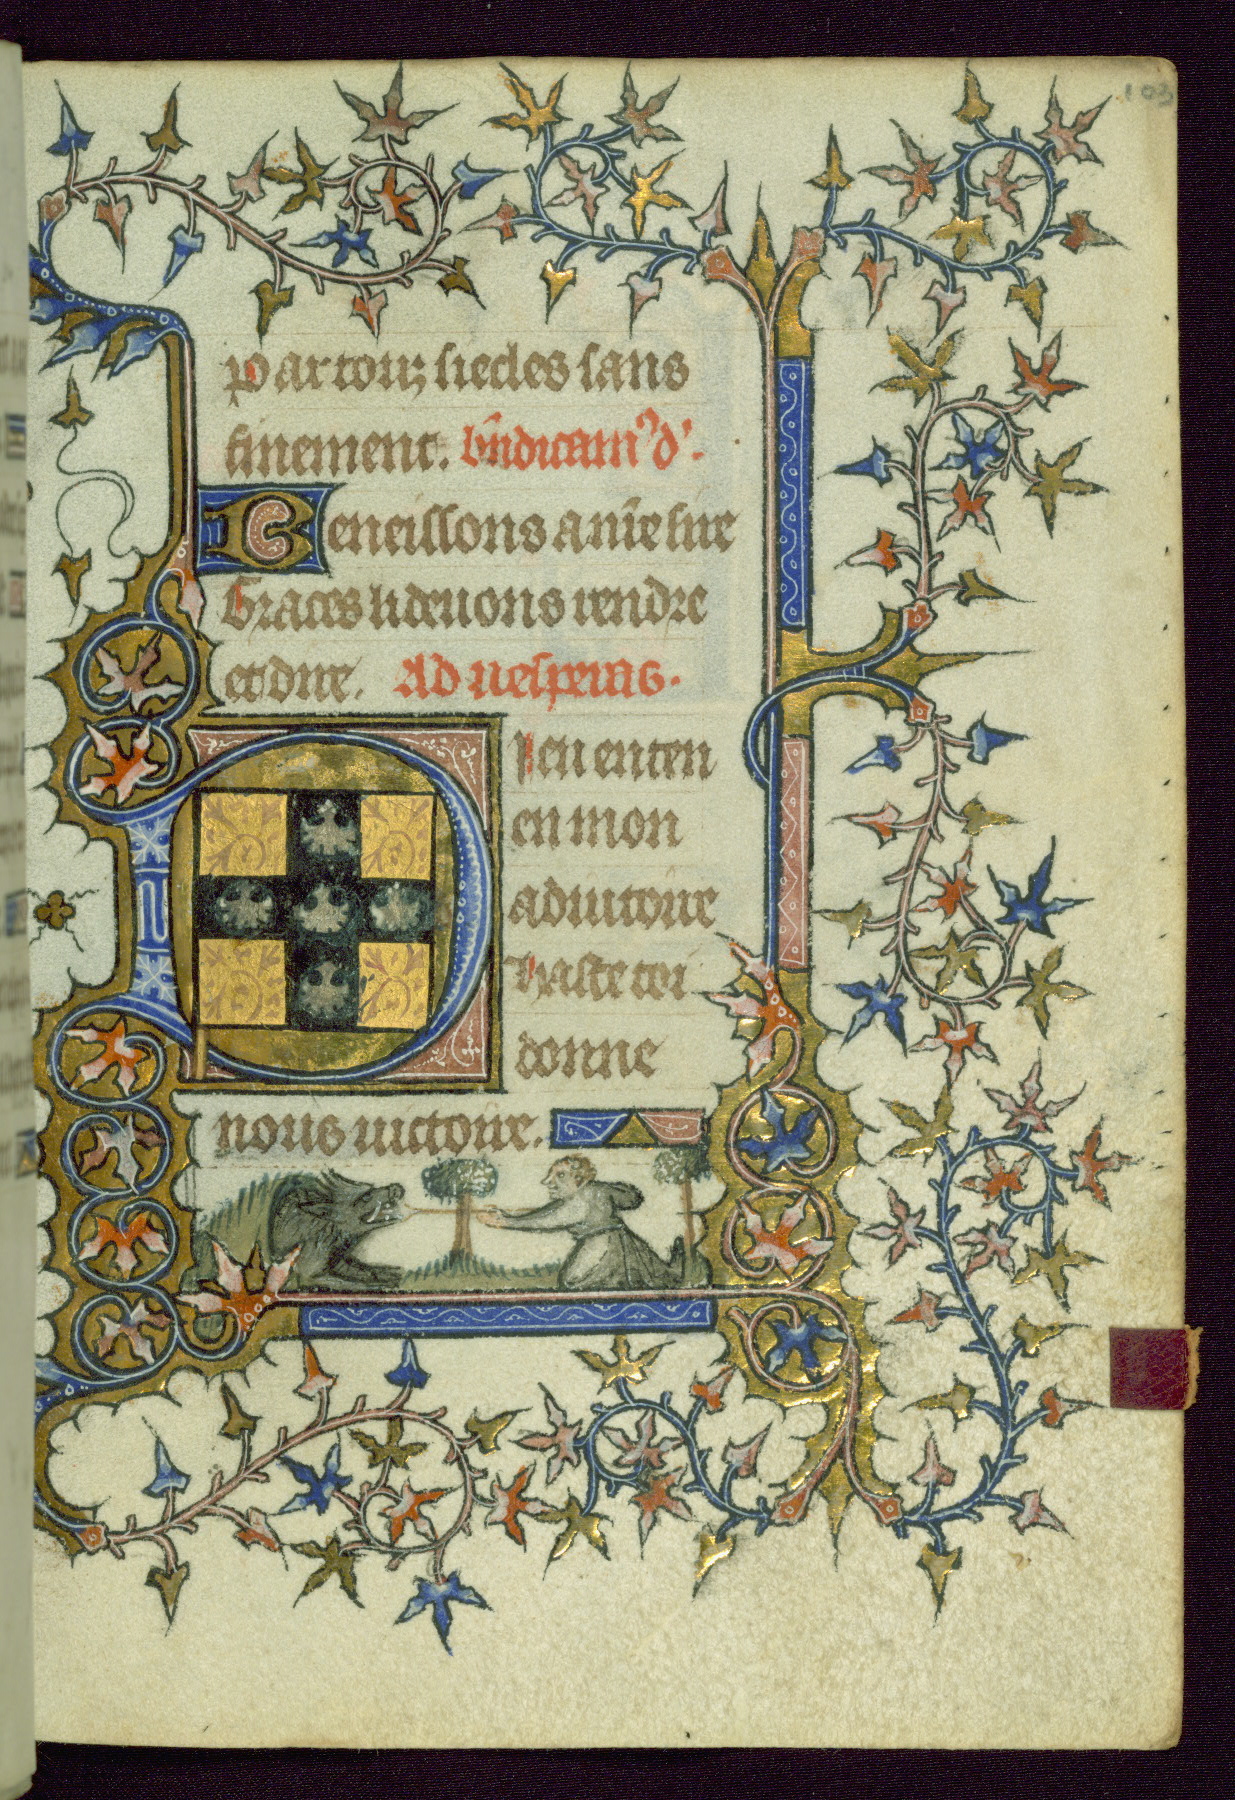 103
par touz siecles sans
finement. bn̄dicam⁹ d'.
Beneissons a nr̄e sire
Graces li deuons rendre
et dire. Ad uesperas.
Dieu enten
en mon
adiutoire
haste toi
donne
nous uictoire.